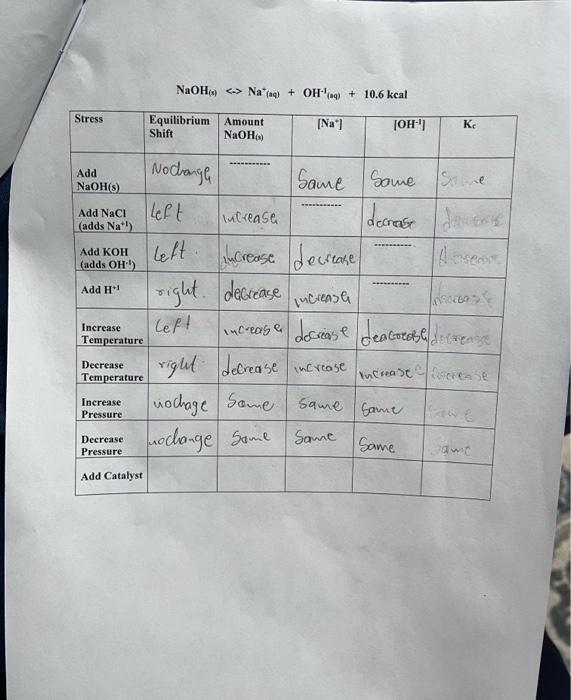 NaOH(s) <-> Na⁺(aq) + OH⁻¹(aq) + 10.6 kcal
Stress Equilibrium Shift Amount NaOH(s) [Na⁺] [OH⁻¹] Kc
Add NaOH(s) No change ---------- Same Same Same
Add NaCl (adds Na⁺¹) left increase ---------- decrease
Add KOH (adds OH⁻¹) left. increase decrease ----------
Add H⁺¹ right. decrease increase ----------
Increase Temperature left increase decrease decrease
Decrease Temperature right decrease increase increase
Increase Pressure nochage Same same Same Same
Decrease Pressure nochange Same Same Same Same
Add Catalyst